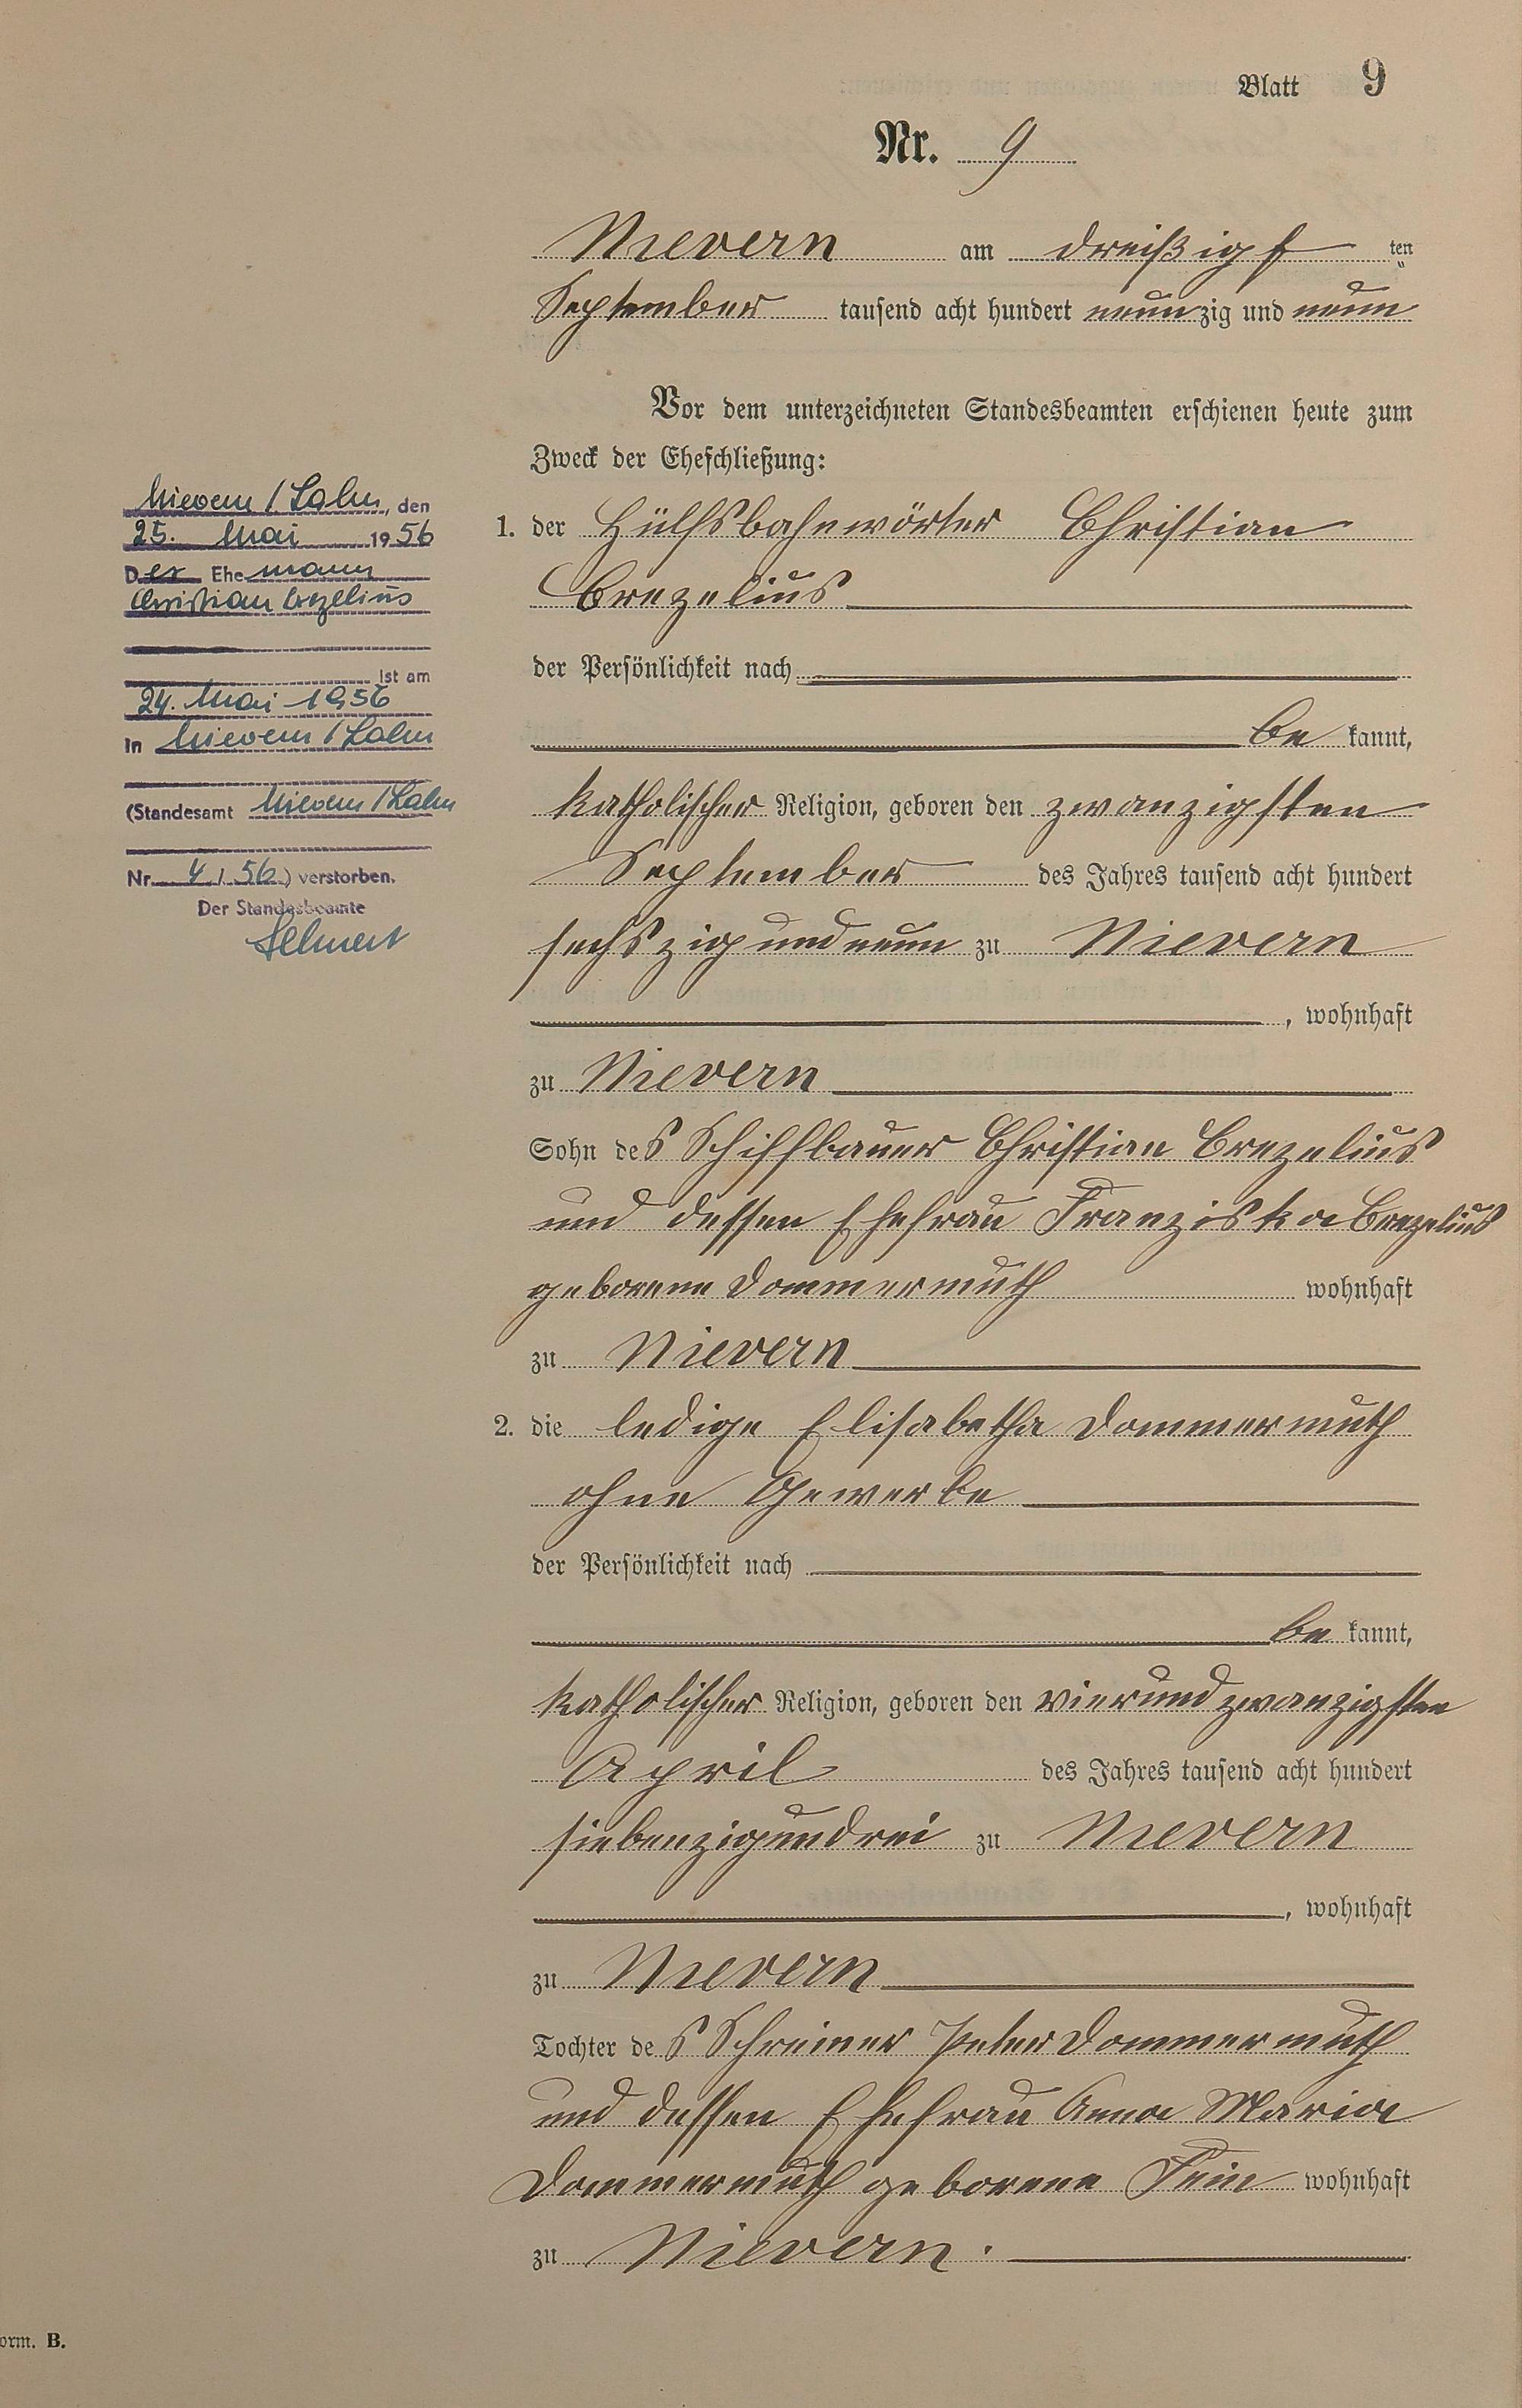 Blatt 9
Nr. 9
Nievern am dreißigsten
September tausend acht hundert neunzig und neun
Vor dem unterzeichneten Standesbeamten erschienen heute zum
Zweck der Eheschließung:
1. der Hülfsbahnwärter Christian
Crezelius
der Persönlichkeit nach
bekannt,
katholischer Religion, geboren den zwanzigsten
September des Jahres tausend acht hundert
sechszigundneun zu Nievern
, wohnhaft
zu Nievern
Sohn des Schiffbauer Christian Crezelius
und dessen Ehefrau Franziska Crezelius
geborene Dommermuth wohnhaft
zu Nievern
2. die ledige Elisabetha Dommermuth
ohne Gewerbe
der Persönlichkeit nach
bekannt,
katholischer Religion, geboren den vierundzwanzigsten
April des Jahres tausend acht hundert
siebenzigunddrei zu Nievern
, wohnhaft
zu Nievern
Tochter des Schreiner Peter Dommermuth
und dessen Ehefrau Anna Maria
Dommermuth geborene wohnhaft
zu Nievern.
Nievern / Lahn, den
25. Mai 1956
Der Ehemann
Christian Crezelius
ist am
24. Mai 1956
in Nievern / Lahn
(Standesamt Nievern / Lahn
Nr. 4 / 56) verstorben.
Der Standesbeamte
orm. B.